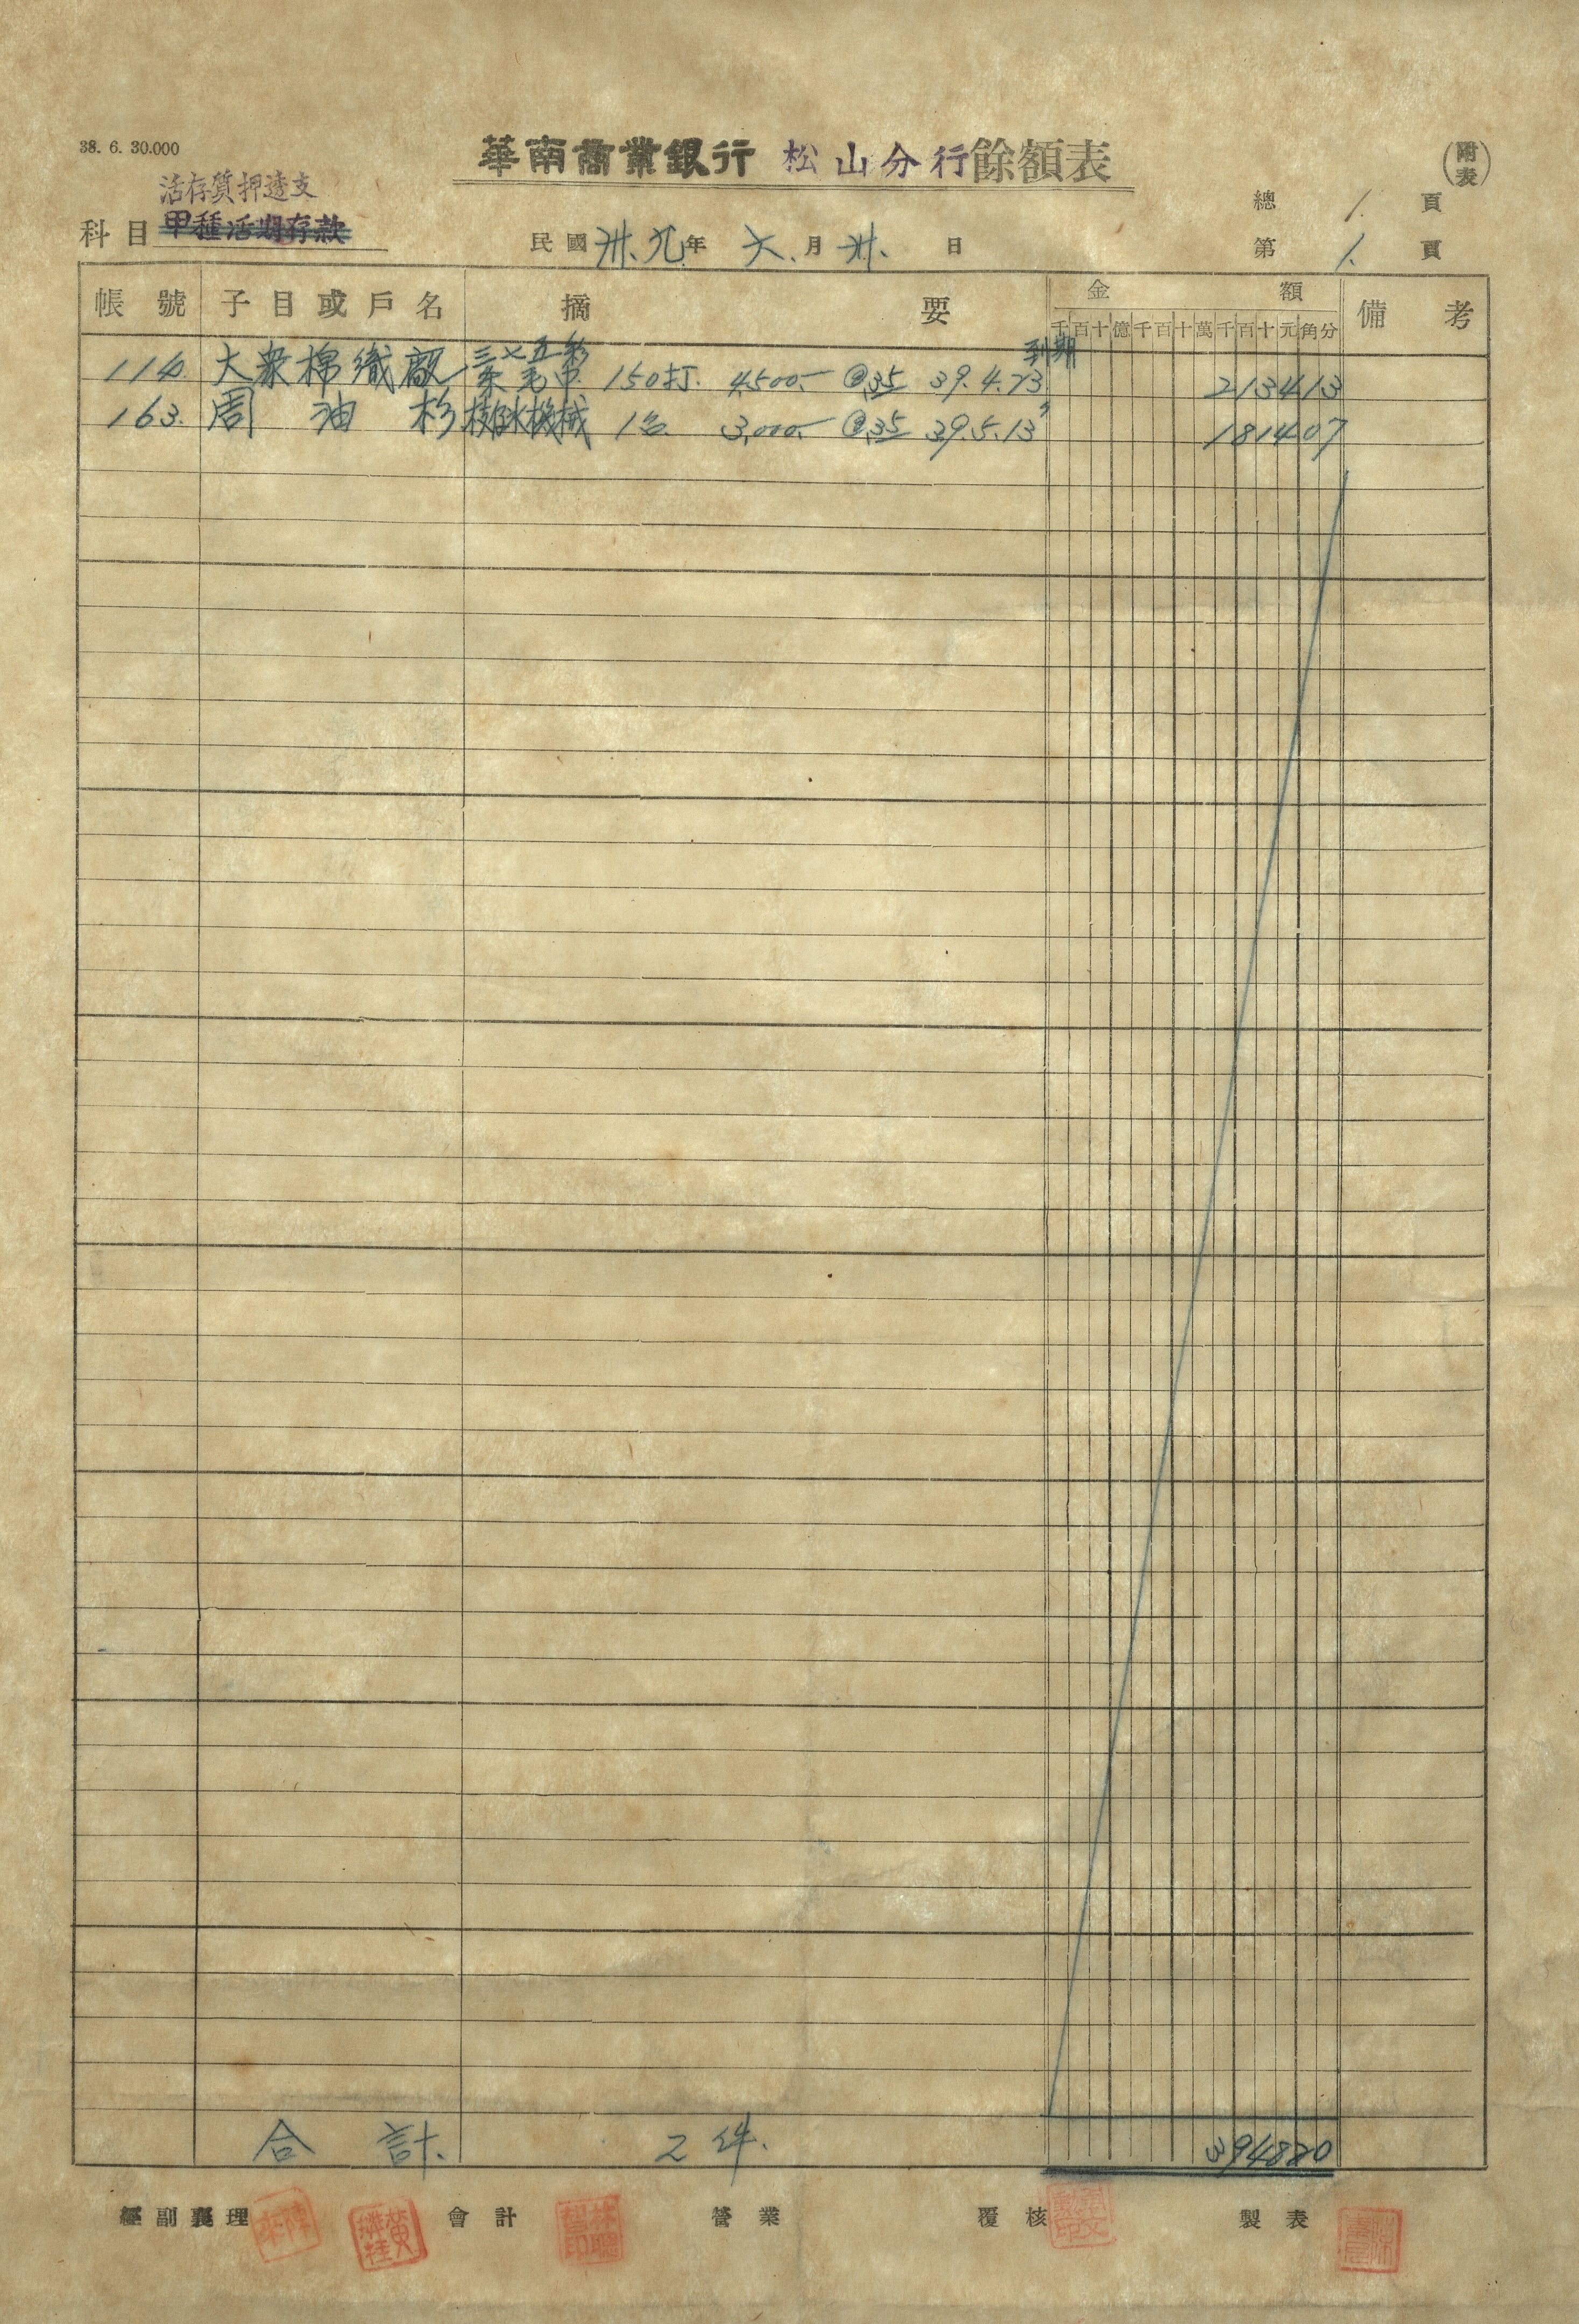 38. 6. 30.000
華南商業銀行 松山分行餘額表
(附表)
活存質押透支
科目 甲種活期存款
民國 卅.九年 六.月 卅. 日
總 1. 頁
第 1. 頁
帳號 子目或戶名 摘要 金額 備考
千百十億千百十萬千百十元角分
到期
大衆棉織廠 150打. 4,500.- @35 39.4.
163. 周油杉 機械 1台 3,000.- @35 39.5.13 181407
合計. 2件. 394820
經副襄理 會計 營業 覆核 製表